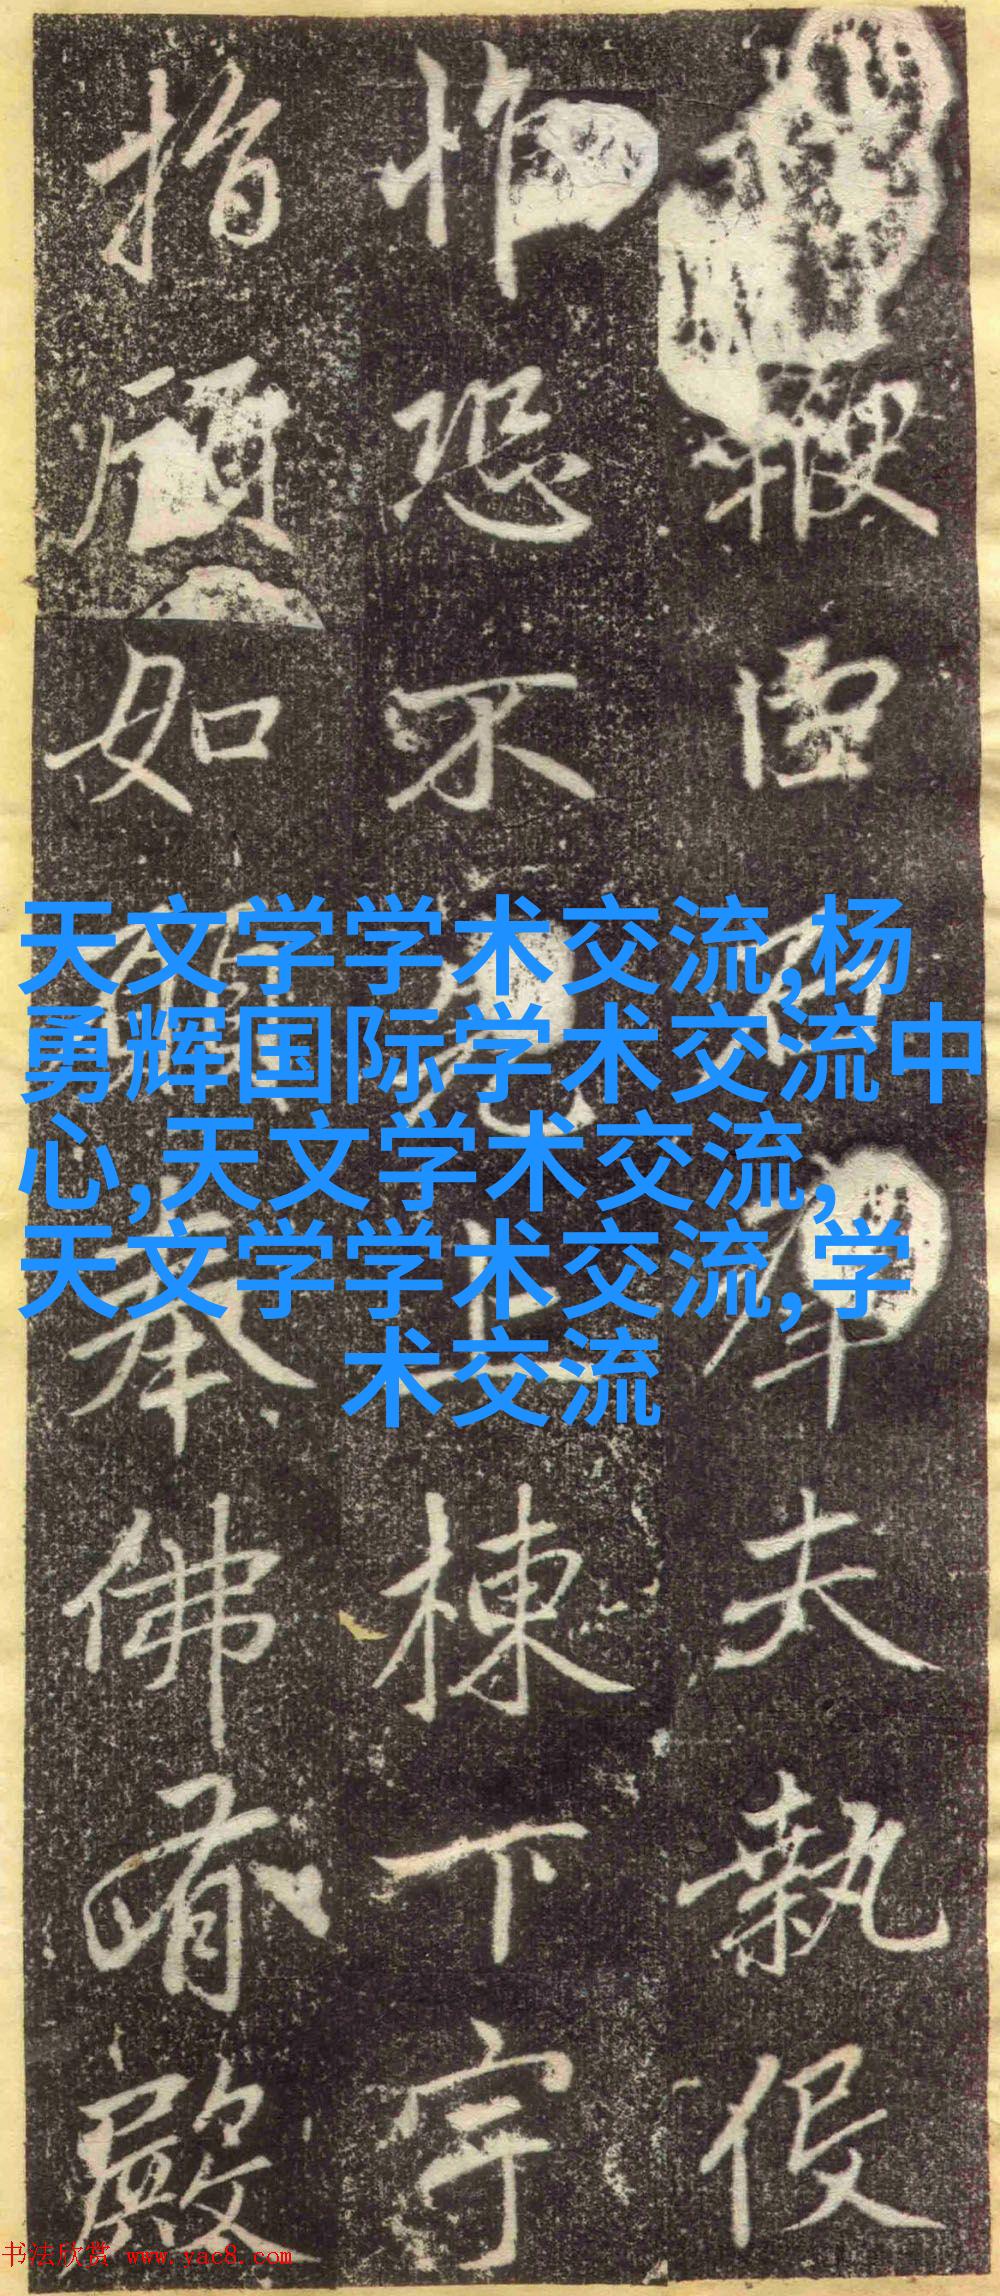 夫執役
恐不上棟下宇
指顧如奉佛有殿
天文学学术交流,杨
勇辉国际学术交流中
心,天文学术交流,
天文学学术交流,学
术交流
书法欣赏 www.yac8.com